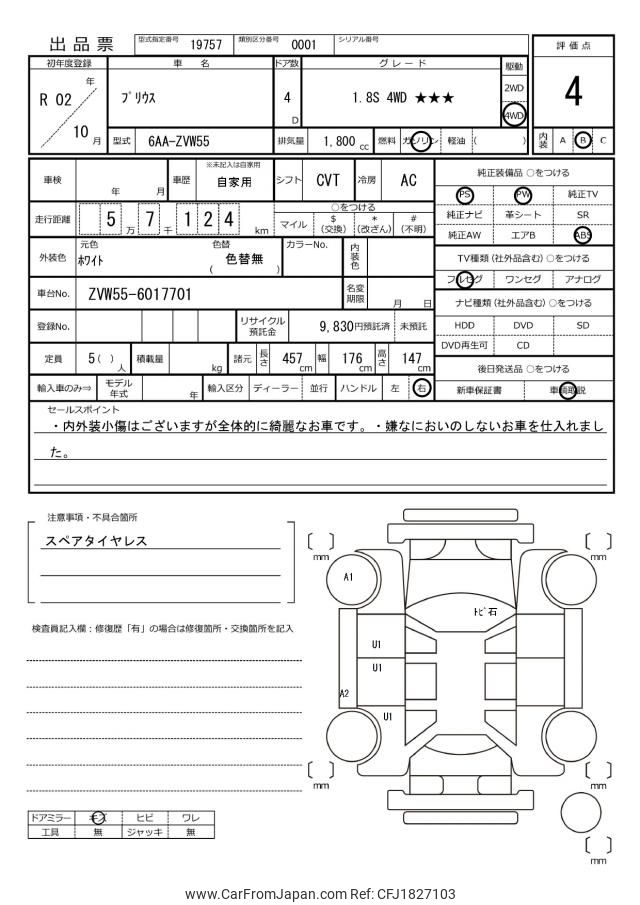 出品票
型式指定番号 19757 類別区分番号 0001 シリアル番号
評価点
4
内装 A B C
初年度登録 車名 ドア数 グレード 駆動
R 02 年 10 月
プリウス
4 D
1.8S 4WD ★★★
2WD
4WD
型式 6AA-ZVW55 排気量 1,800 cc 燃料 ガソリン 軽油 ( )
車検 年 月 車歴 ※未記入は自家用 自家用 シフト CVT 冷房 AC
走行距離 5 万 7 千 1 2 4 km
○をつける
マイル $(交換) *(改ざん) #(不明)
外装色 元色 ホワイト 色替 ( 色替無 ) カラーNo. 内装色
車台No. ZVW55-6017701 名変期限 月 日
登録No. リサイクル預託金 9,830円預託済 未預託
定員 5 ( ) 人 積載量 kg 諸元 長さ 457 cm 幅 176 cm 高さ 147 cm
輸入車のみ⇒ モデル年式 年 輸入区分 ディーラー 並行 ハンドル 左 右
純正装備品 ○をつける
PS PW 純正TV
純正ナビ 革シート SR
純正AW エアB ABS
TV種類 (社外品含む) ○をつける
フルセグ ワンセグ アナログ
ナビ種類 (社外品含む) ○をつける
HDD DVD SD
DVD再生可 CD
後日発送品 ○をつける
新車保証書 車輌取説
セールスポイント
・内外装小傷はございますが全体的に綺麗なお車です。・嫌なにおいのしないお車を仕入れまし
た。
注意事項・不具合箇所
スペアタイヤレス
検査員記入欄：修復歴「有」の場合は修復箇所・交換箇所を記入
mm
mm
A1
トビ石
U1
U1
A2
U1
mm
mm
mm
ドアミラー キズ ヒビ ワレ
工具 無 ジャッキ 無
www.CarFromJapan.com Ref: CFJ1827103